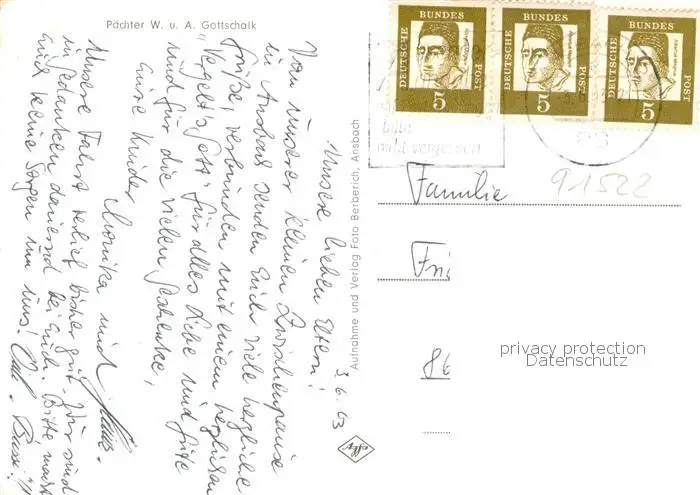 Pächter W. u. A. Gottschalk
Aufnahme und Verlag Foto Berberich, Ansbach
3.6.63
Unsere lieben Eltern!
Von unserer kleinen Zwischenpause
in Ansbach senden Euch viele herzliche
Grüße, verbunden mit einem herzlichen
"Vergelt's Gott" für alles Liebe und Gute
und für die vielen Geschenke,
Eure Kinder
Monika und
Unsere Fahrt verlief bisher gut. Wir sind
in Gedanken dauernd bei Euch. Bitte macht
Euch keine Sorgen um uns!
DEUTSCHE BUNDES POST
5
DEUTSCHE BUNDES POST
5
DEUTSCHE BUNDES POST
5
bitte
nicht vergessen
91522
Familie
86
privacy protection
Datenschutz